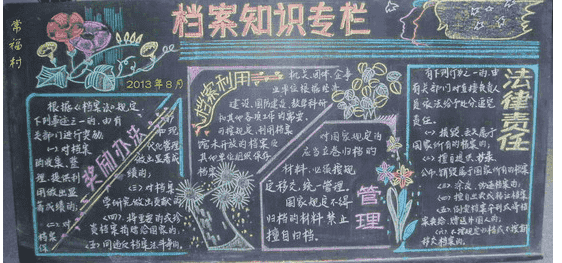 档案知识专栏
常福村
2013年8月
奖励办法
根据《档案法》规定,
下列事迹之一的,由有
关部门进行奖励。
(一)对档案
的收集、整
理、提供利
用做出显
著成绩的;
(二)对
档案
保
护和现
代化管理
做出显著成
绩的;
(三)对档案
学研究做出贡献的;
(四)、将重要的或珍
贵档案捐赠给国家的;
(五)同违反档案法斗争的。
档案利用
机关、团体、企事
业单位根据
建设、国防建设、教学科研
和其他各项工作的需要,
可按规定,利用档案
馆未开放的档案及
其他单位组织保存
档案
管理
对国家规定的
应当立卷归档的
材料,必须按规
定移交,统一管理。
国家规定不得
归档的材料禁止
擅自归档。
法律责任
有下列行为之一的,由
有关部门对直接负责人
员依法给予处分,追究
责任。
(一)损毁、丢失属于
国家所有的档案的;
(二)擅自提供、抄录、
公布、销毁属于国家所有的档案
(三)涂改、伪造档案的;
(四)擅自出卖或转让档案
(五)倒卖档案牟利或将档
案卖给、赠送外国人的;
(六)不按规定归档或不按期
移交档案的。